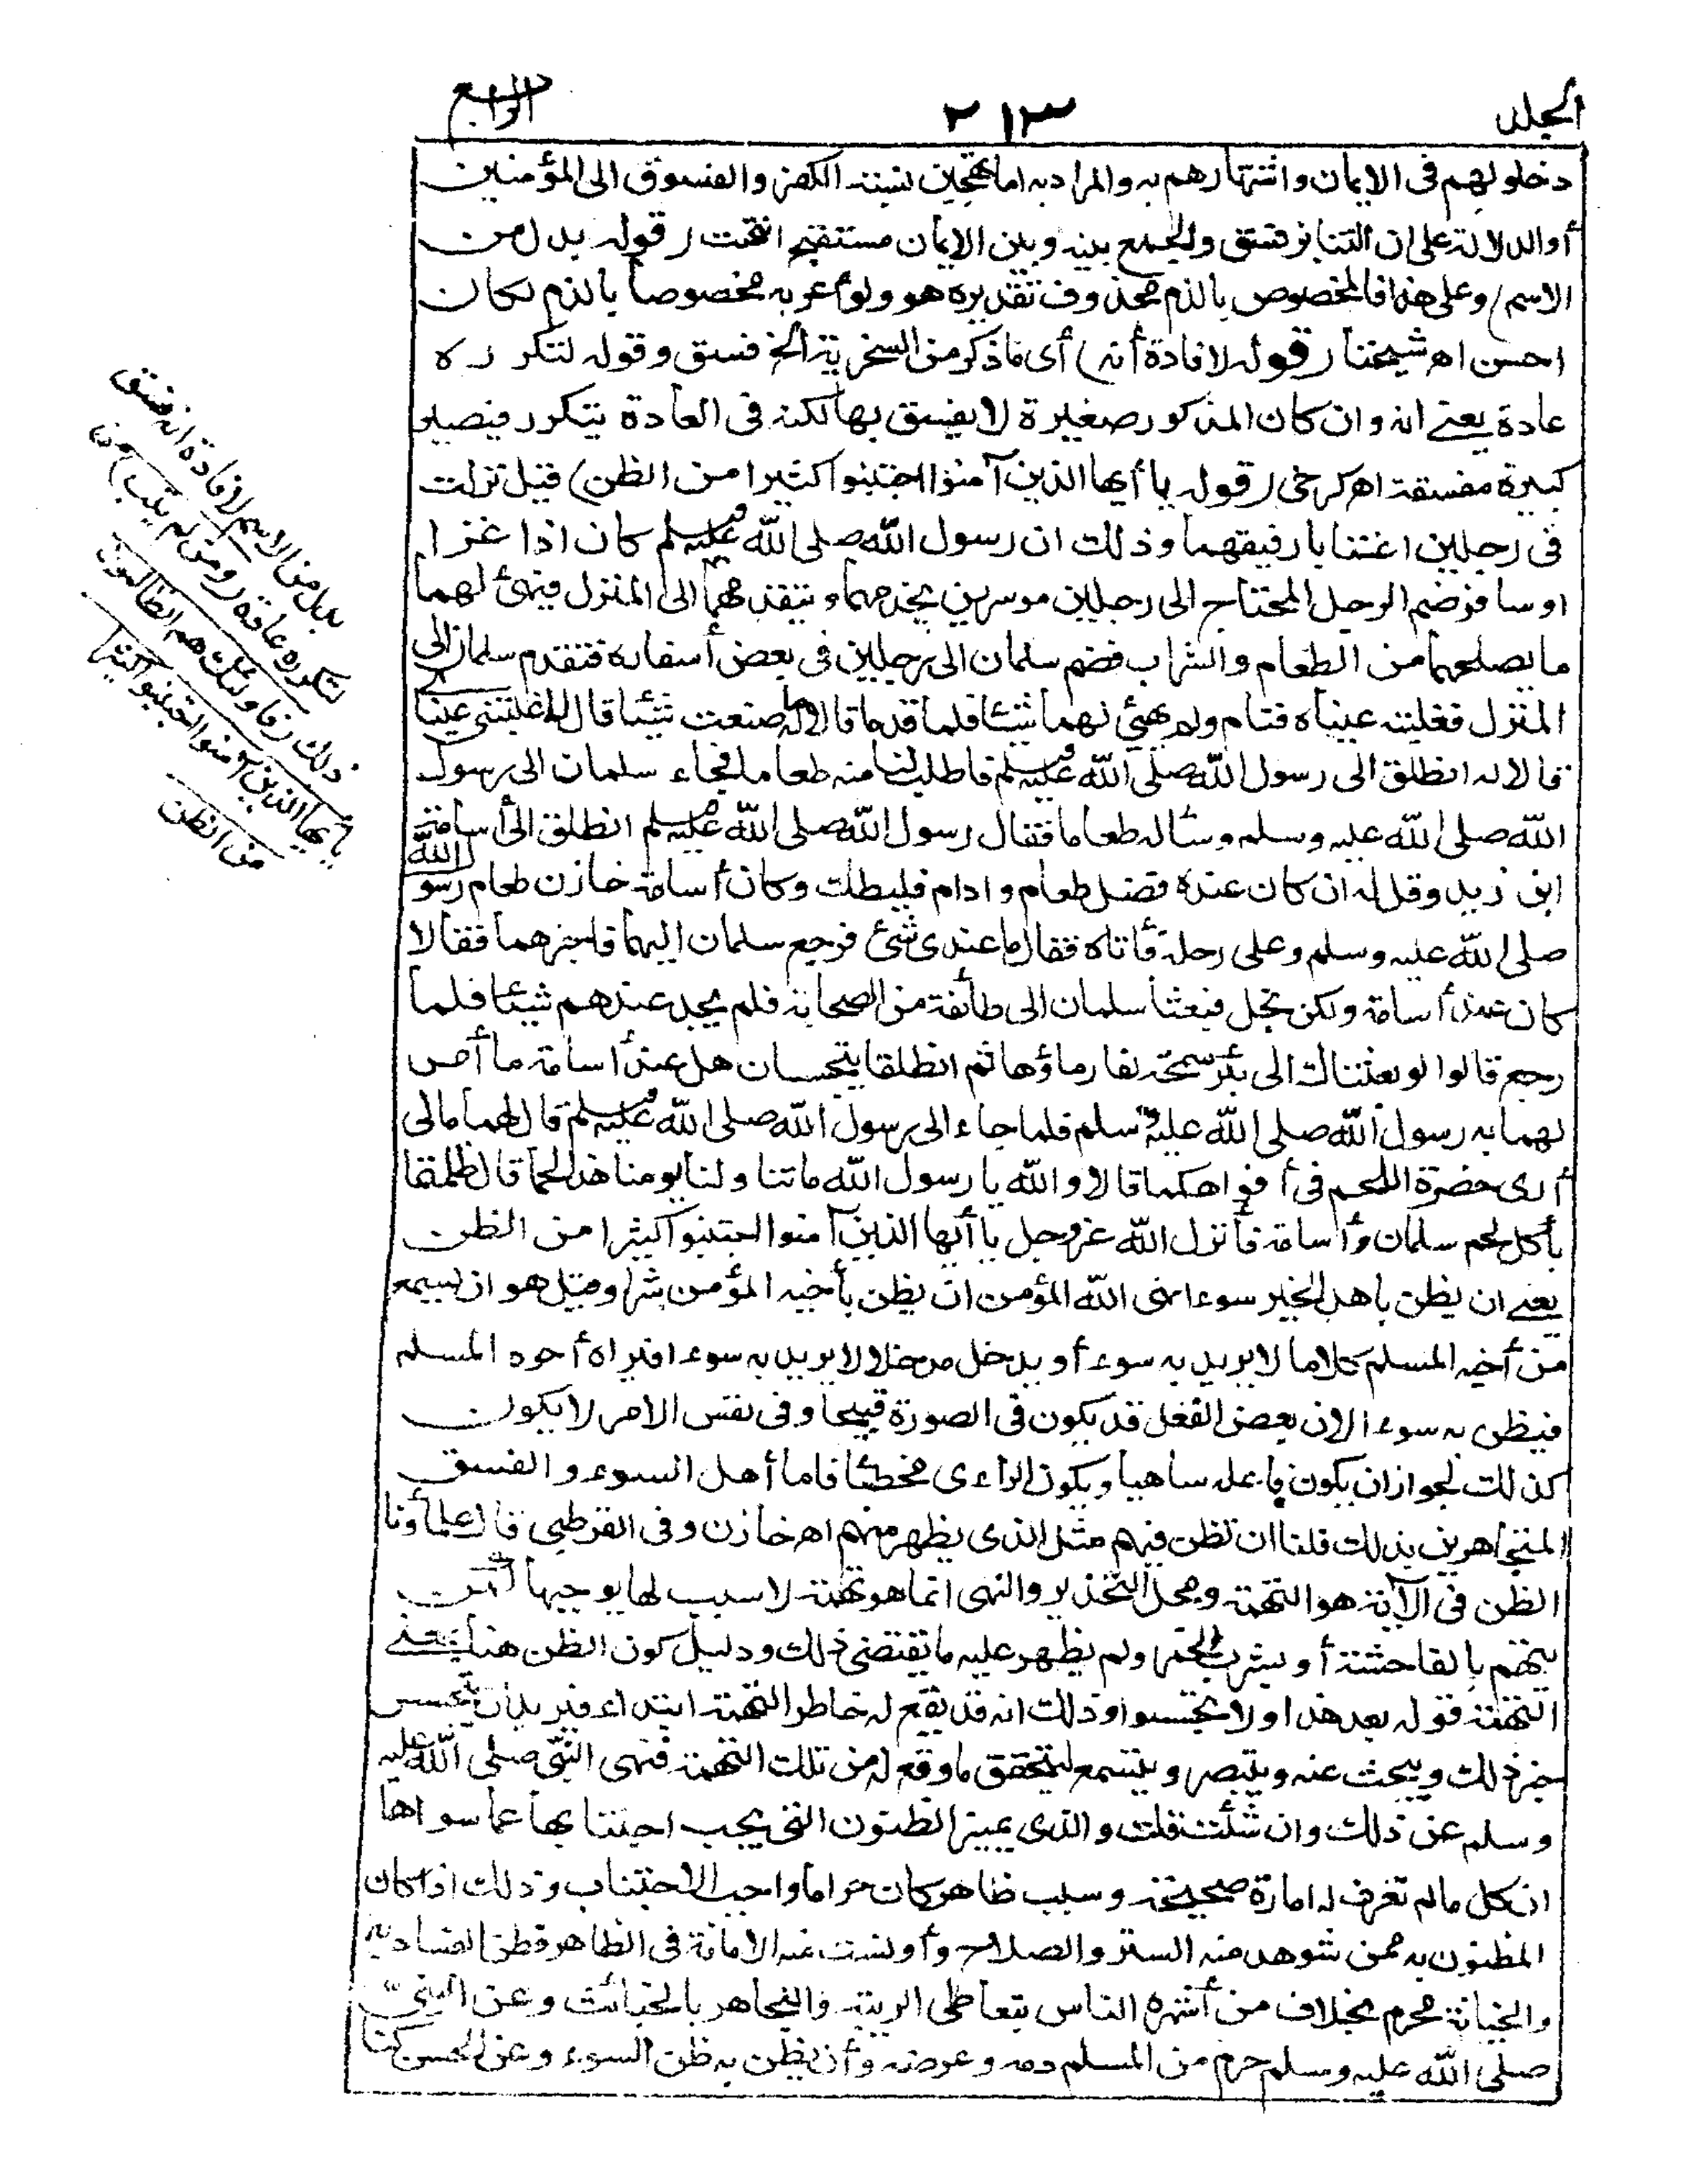 الجلد
٢١٣
الرابع
دخولهم فى الايمان واشتهارهم به والمراد به اما تهجين نسبة الكفر والفسوق الى المؤمنين
أو الدلالة على ان التنابز فسق والجمع بينه وبين الايمان مستقبح انتهت (قوله بدل من
الاسم) وعلى هذا فالمخصوص بالذم محذوف تقديره هو ولو أعربه مخصوصا بالذم لكان
احسن اه شيخنا (قوله لافادة أنه) أى ماذكر من السخرية الخ فسق وقوله لتكرره
عادة يعنى انه وان كان المذكور صغيرة لا يفسق بها لكنه فى العادة يتكرر فيصير
كبيرة مفسقة اه كرخى (قوله يا أيها الذين آمنوا اجتنبوا كثيرا من الظن) قيل نزلت
فى رجلين اغتابا رفيقهما وذلك ان رسول الله صلى الله عليه وسلم كان اذا غزا
او سافر ضم الرجل المحتاج الى رجلين موسرين يخدمهما ويتقدمهما الى المنزل فيهئ لهما
ما يصلحهما من الطعام والشراب فضم سلمان الى رجلين فى بعض أسفاره فتقدم سلمان الى
المنزل فغلبته عيناه فنام ولم يهيئ لهما شيئا فلما قدما قالا له ما صنعت شيئا قال لا غلبتنى عيناى
قالا له انطلق الى رسول الله صلى الله عليه وسلم فاطلب لنا منه طعاما فجاء سلمان الى رسول
الله صلى الله عليه وسلم وسأله طعاما فقال رسول الله صلى الله عليه وسلم انطلق الى أسامة
ابن زيد وقل له ان كان عنده فضل طعام وادام فليعطك وكان أسامة خازن طعام رسول الله
صلى الله عليه وسلم وعلى رحله فأتاه فقال ما عندى شئ فرجع سلمان اليهما فاخبرهما فقالا
كان عند أسامة ولكن بخل فبعثا سلمان الى طائفة من الصحابة فلم يجد عندهم شيئا فلما
رجع قالوا لو بعثناك الى بئر سميحة لغار ماؤها ثم انطلقا يتجسسان هل عند أسامة ما أمر
لهما به رسول الله صلى الله عليه وسلم فلما جاء الى رسول الله صلى الله عليه وسلم قال لهما مالى
أرى خضرة اللحم فى أفواهكما قالا والله يا رسول الله ماتنا ولنا يومنا هذا لحما قال ظللتما
بأكل لحم سلمان وأسامة فأنزل الله عز وجل يا أيها الذين آمنوا اجتنبوا كثيرا من الظن
يعنى ان يظن باهل الخير سوءا نهى الله المؤمن ان يظن بأخيه المؤمن شرا وقيل هو ان يسمع
من أخيه المسلم كلاما لا يريد به سوء أو يدخل مدخلا لا يريد به سوء افيراه أخوه المسلم
فيظن به سوءا لان بعض الفعل قد يكون فى الصورة قبيحا وفى نفس الامر لا يكون
كذلك لجواز ان يكون فاعله ساهيا ويكون الراءى مخطئا فاما أهل السوء والفسق
المتجاهرين بذلك فلنا ان نظن فيهم مثل الذى يظهر منهم اه خازن وفى القرطبى قال علماؤنا
الظن فى الآية هو التهمة ومحل التحذير والنهى انما هو تهمة لا سبب لها يوجبها كمن
يتهم بالفاحشة أو بشرب الخمر ولم يظهر عليه ما يقتضى ذلك ودليل كون الظن هنا بمعنى
التهمة قوله بعد هذا ولا تجسسوا وذلك انه قد يقع له خاطر التهمة ابتداء فيريد ان يتجسس
خبر ذلك ويبحث عنه ويتبصر ويتسمع ليتحقق ما وقع له من تلك التهمة فنهى النبى صلى الله عليه
وسلم عن ذلك وان شئت قلت والذى يميز الظنون التى يجب اجتنابها عما سواها
ان كل ما لم تعرف له امارة صحيحة وسبب ظاهر كان حراما واجب الاجتناب وذلك اذا كان
المظنون به ممن شوهد منه الستر والصلاح وأونست منه الامانة فى الظاهر فظن الفساد به
والخيانة محرم بخلاف من أشتهره الناس بتعاطى الريبة والتجاهر بالخبائث وعن النبى
صلى الله عليه وسلم حرم من المسلم دمه وعرضه وأن يظن به ظن السوء وعن الحسن كنا
بدل من الاسم لافادة انه فسق
لتكرره عادة (ومن لم يتب) من
ذلك (فاولئك هم الظالمون
يأيها الذين آمنوا اجتنبوا كثيرا
من الظن